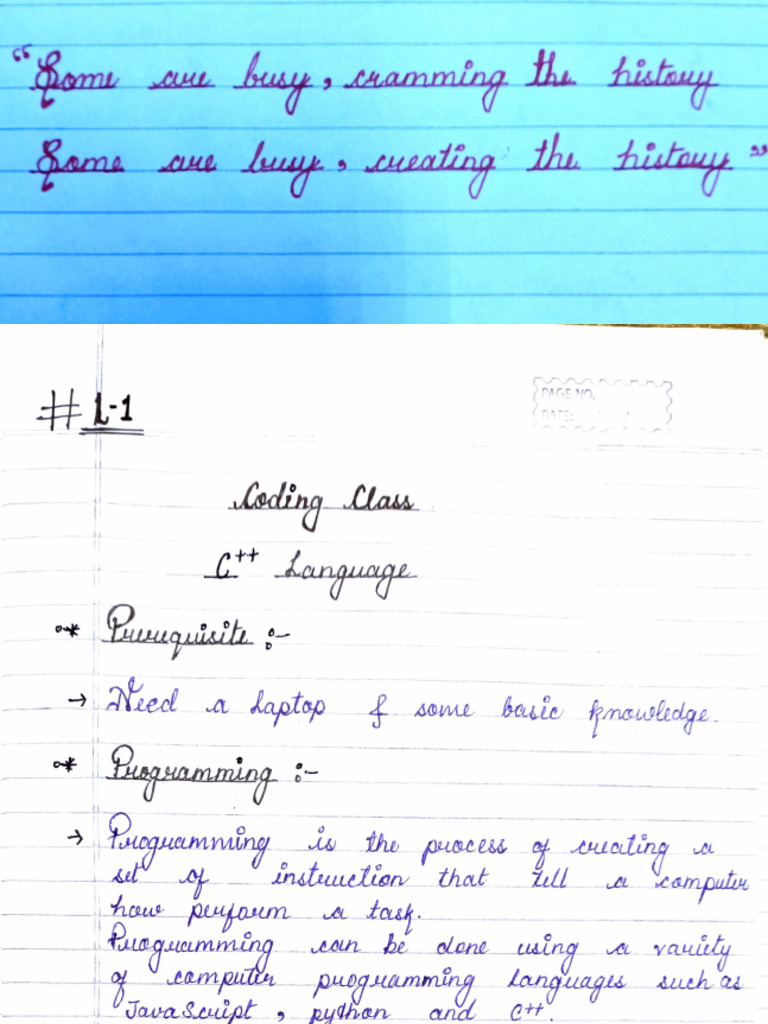 “Some are busy, cramming the history
Some are busy, creating the history”
PAGE NO.
DATE: / /
# L-1
Coding Class
C++ Language
* Prerequisite :-
→ Need a laptop & some basic knowledge.
* Programming :-
→ Programming is the process of creating a
set of instruction that tell a computer
how perform a task.
Programming can be done using a variety
of computer programming languages such as
JavaScript, python and C++.